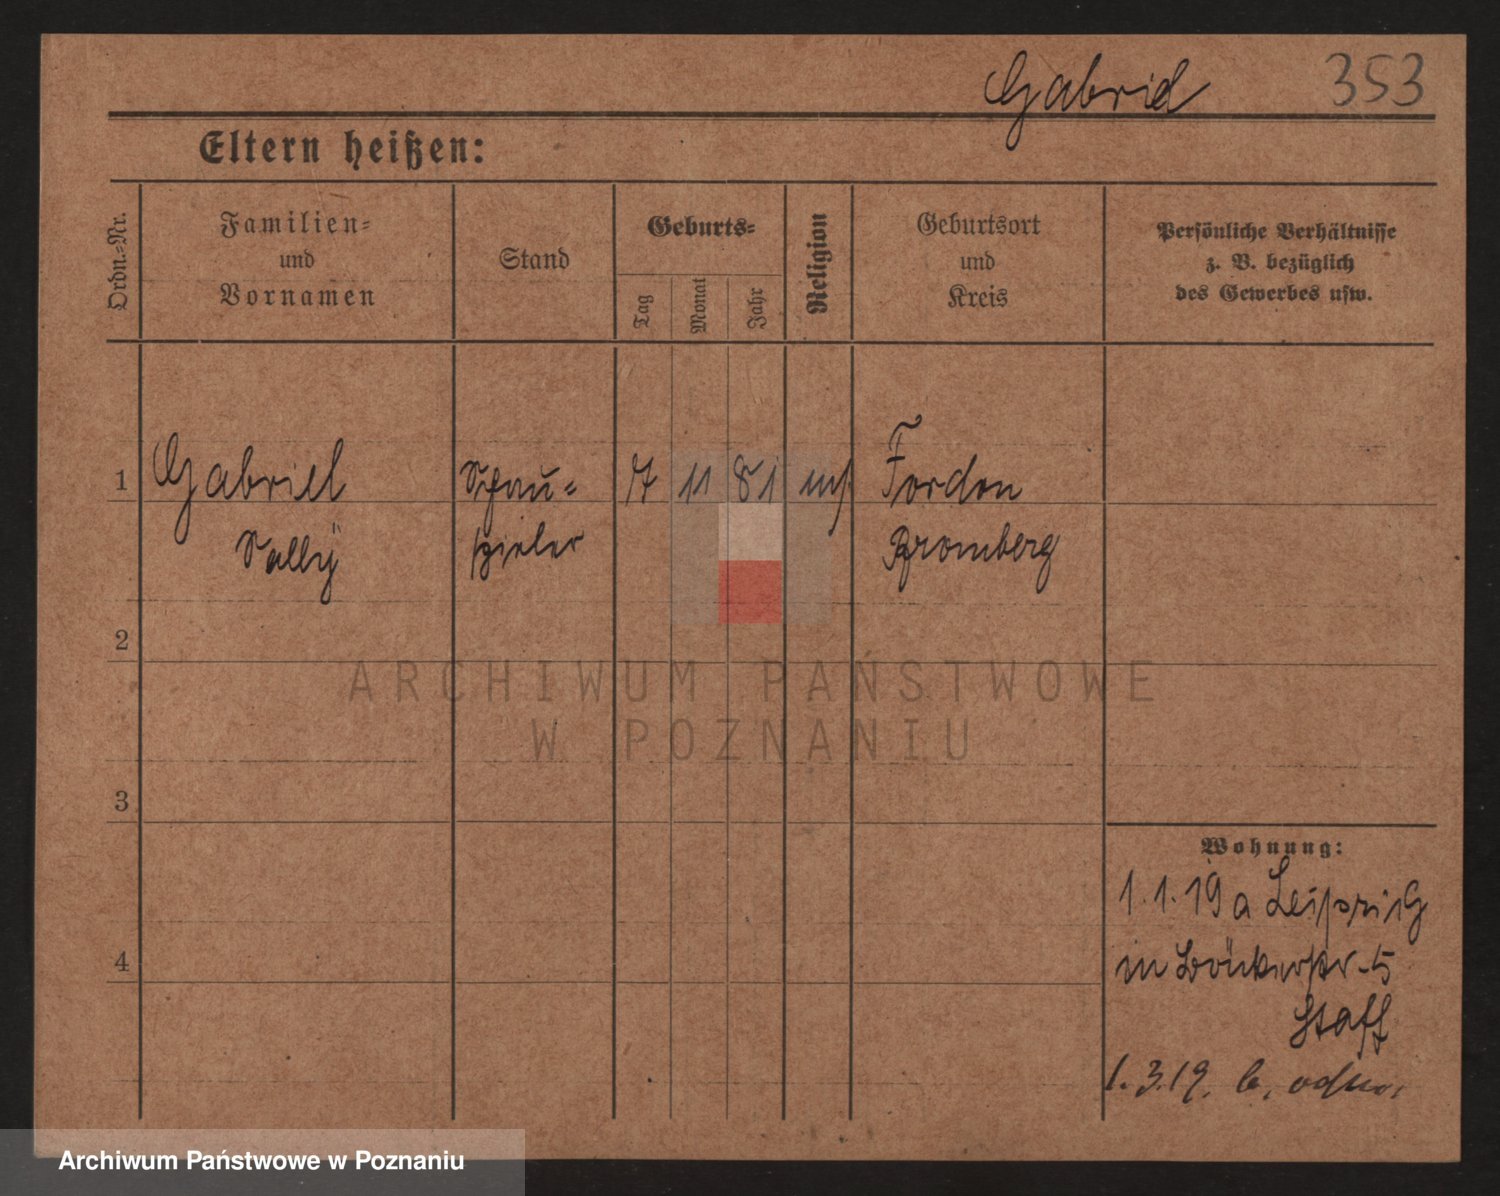 Gabriel 353
Eltern heißen:
Ordn.-Nr.
Familien-
und
Vornamen
Stand
Geburts-
Tag
Monat
Jahr
Religion
Geburtsort
und
Kreis
Persönliche Verhältnisse
z. B. bezüglich
des Gewerbes usw.
1 Gabriel Schau- 7 11 81 mos. Fordon
Sally spieler Bromberg
2
3
4
Wohnung:
1.1.19 a Leipzig
in 5
Staff
1.3.19.
ARCHIWUM PAŃSTWOWE
W POZNANIU
Archiwum Państwowe w Poznaniu